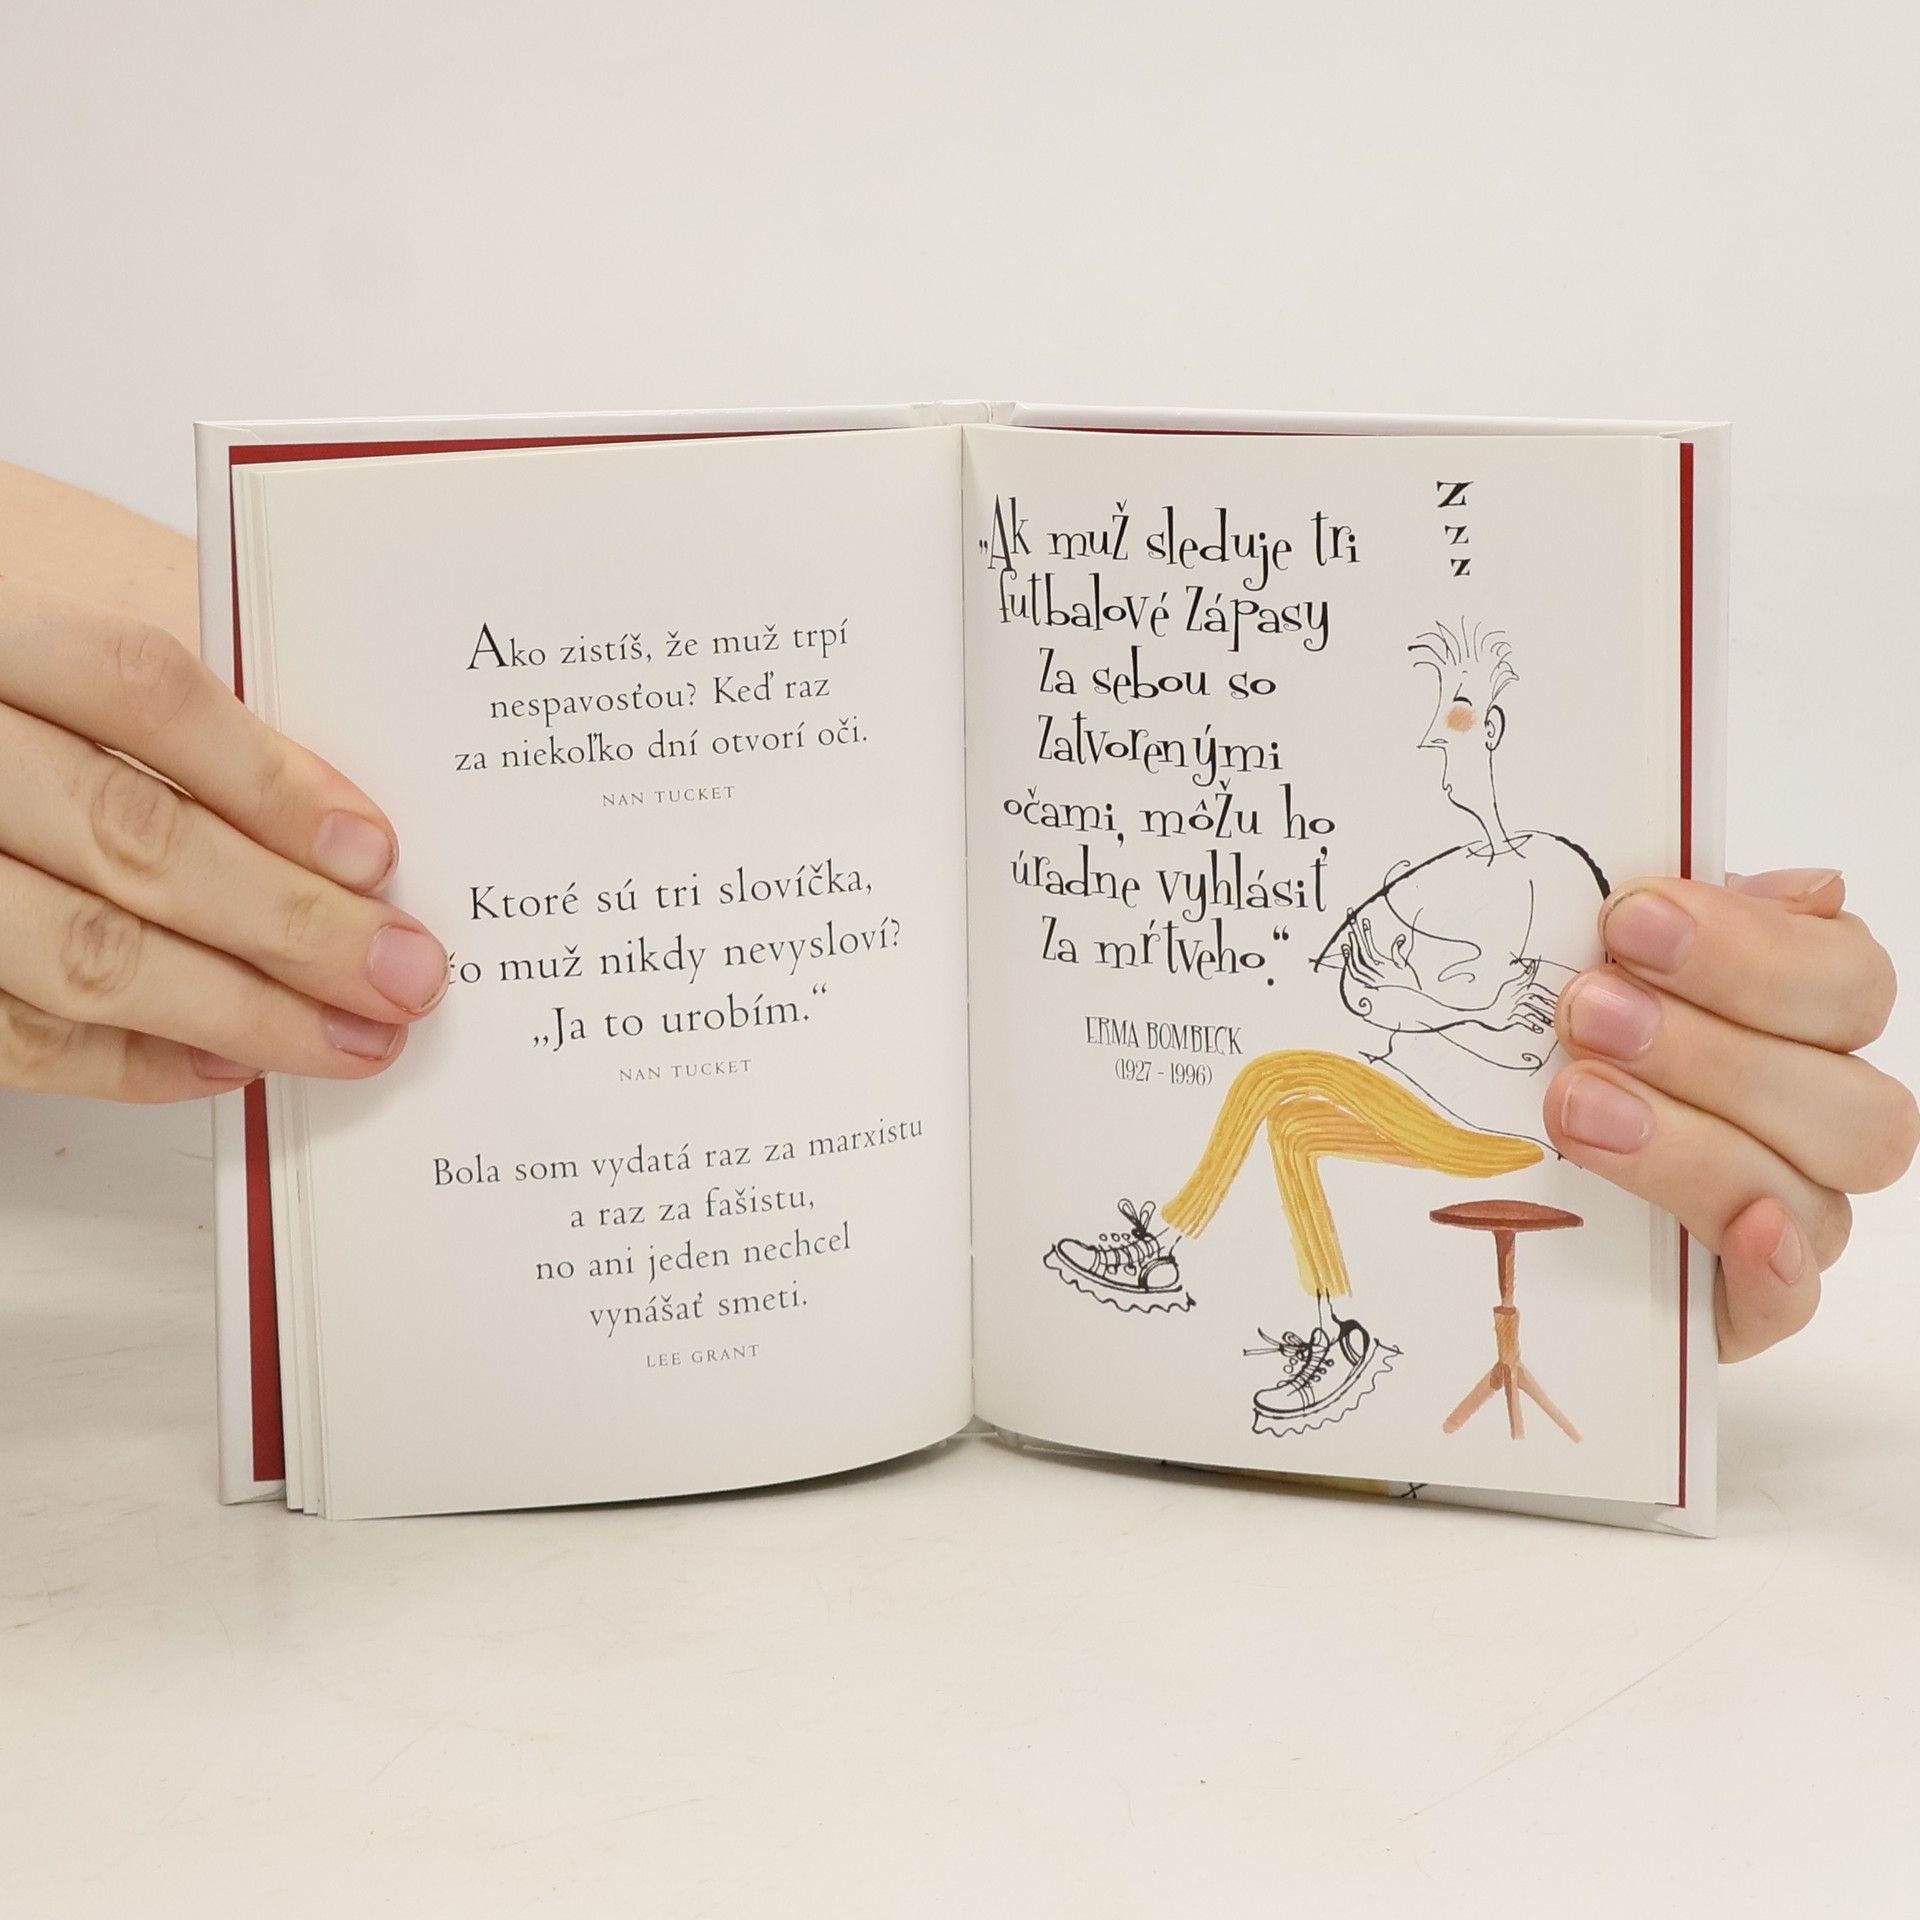 Ako zistíš, že muž trpí
nespavosťou? Keď raz
za niekoľko dní otvorí oči.
NAN TUCKET
Ktoré sú tri slovíčka,
čo muž nikdy nevysloví?
„Ja to urobím.“
NAN TUCKET
Bola som vydatá raz za marxistu
a raz za fašistu,
no ani jeden nechcel
vynášať smeti.
LEE GRANT
„Ak muž sleduje tri
futbalové zápasy
za sebou so
zatvorenými
očami, môžu ho
úradne vyhlásiť
za mŕtveho.“
ERMA BOMBECK
(1927 - 1996)
Z
Z
Z